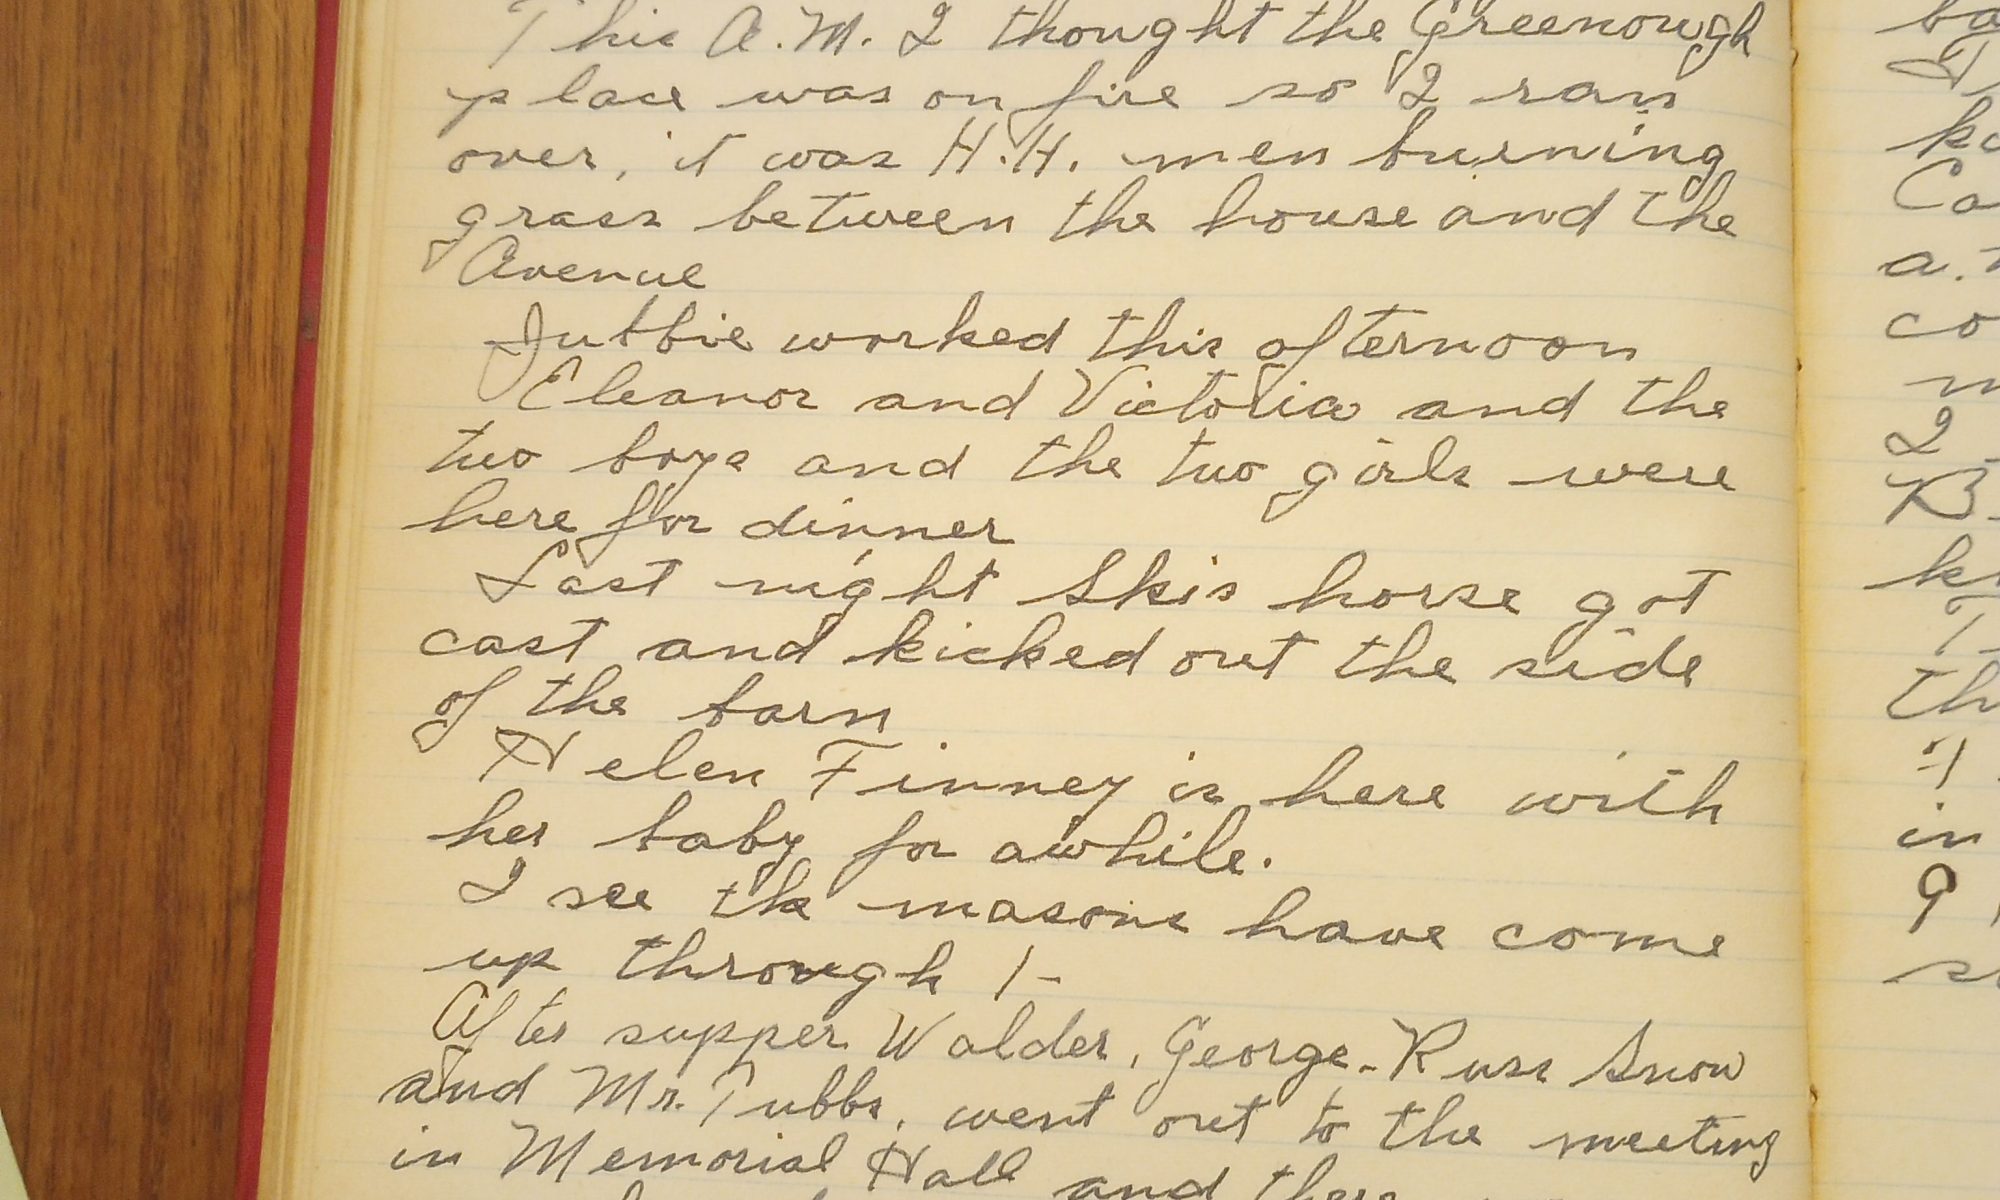 This A.M. I thought the Greenough
place was on fire so I ran
over, it was H.H. men burning
grass between the house and the
Avenue
Jutbie worked this afternoon
Eleanor and Victoria and the
two boys and the two girls were
here for dinner
Last night Skis horse got
cast and kicked out the side
of the barn
Helen Finney is here with
her baby for awhile.
I see the masons have come
up through 1-
After supper Walder, George - Russ Snow
and Mr. Tubbs, went out to the meeting
in Memorial Hall and there